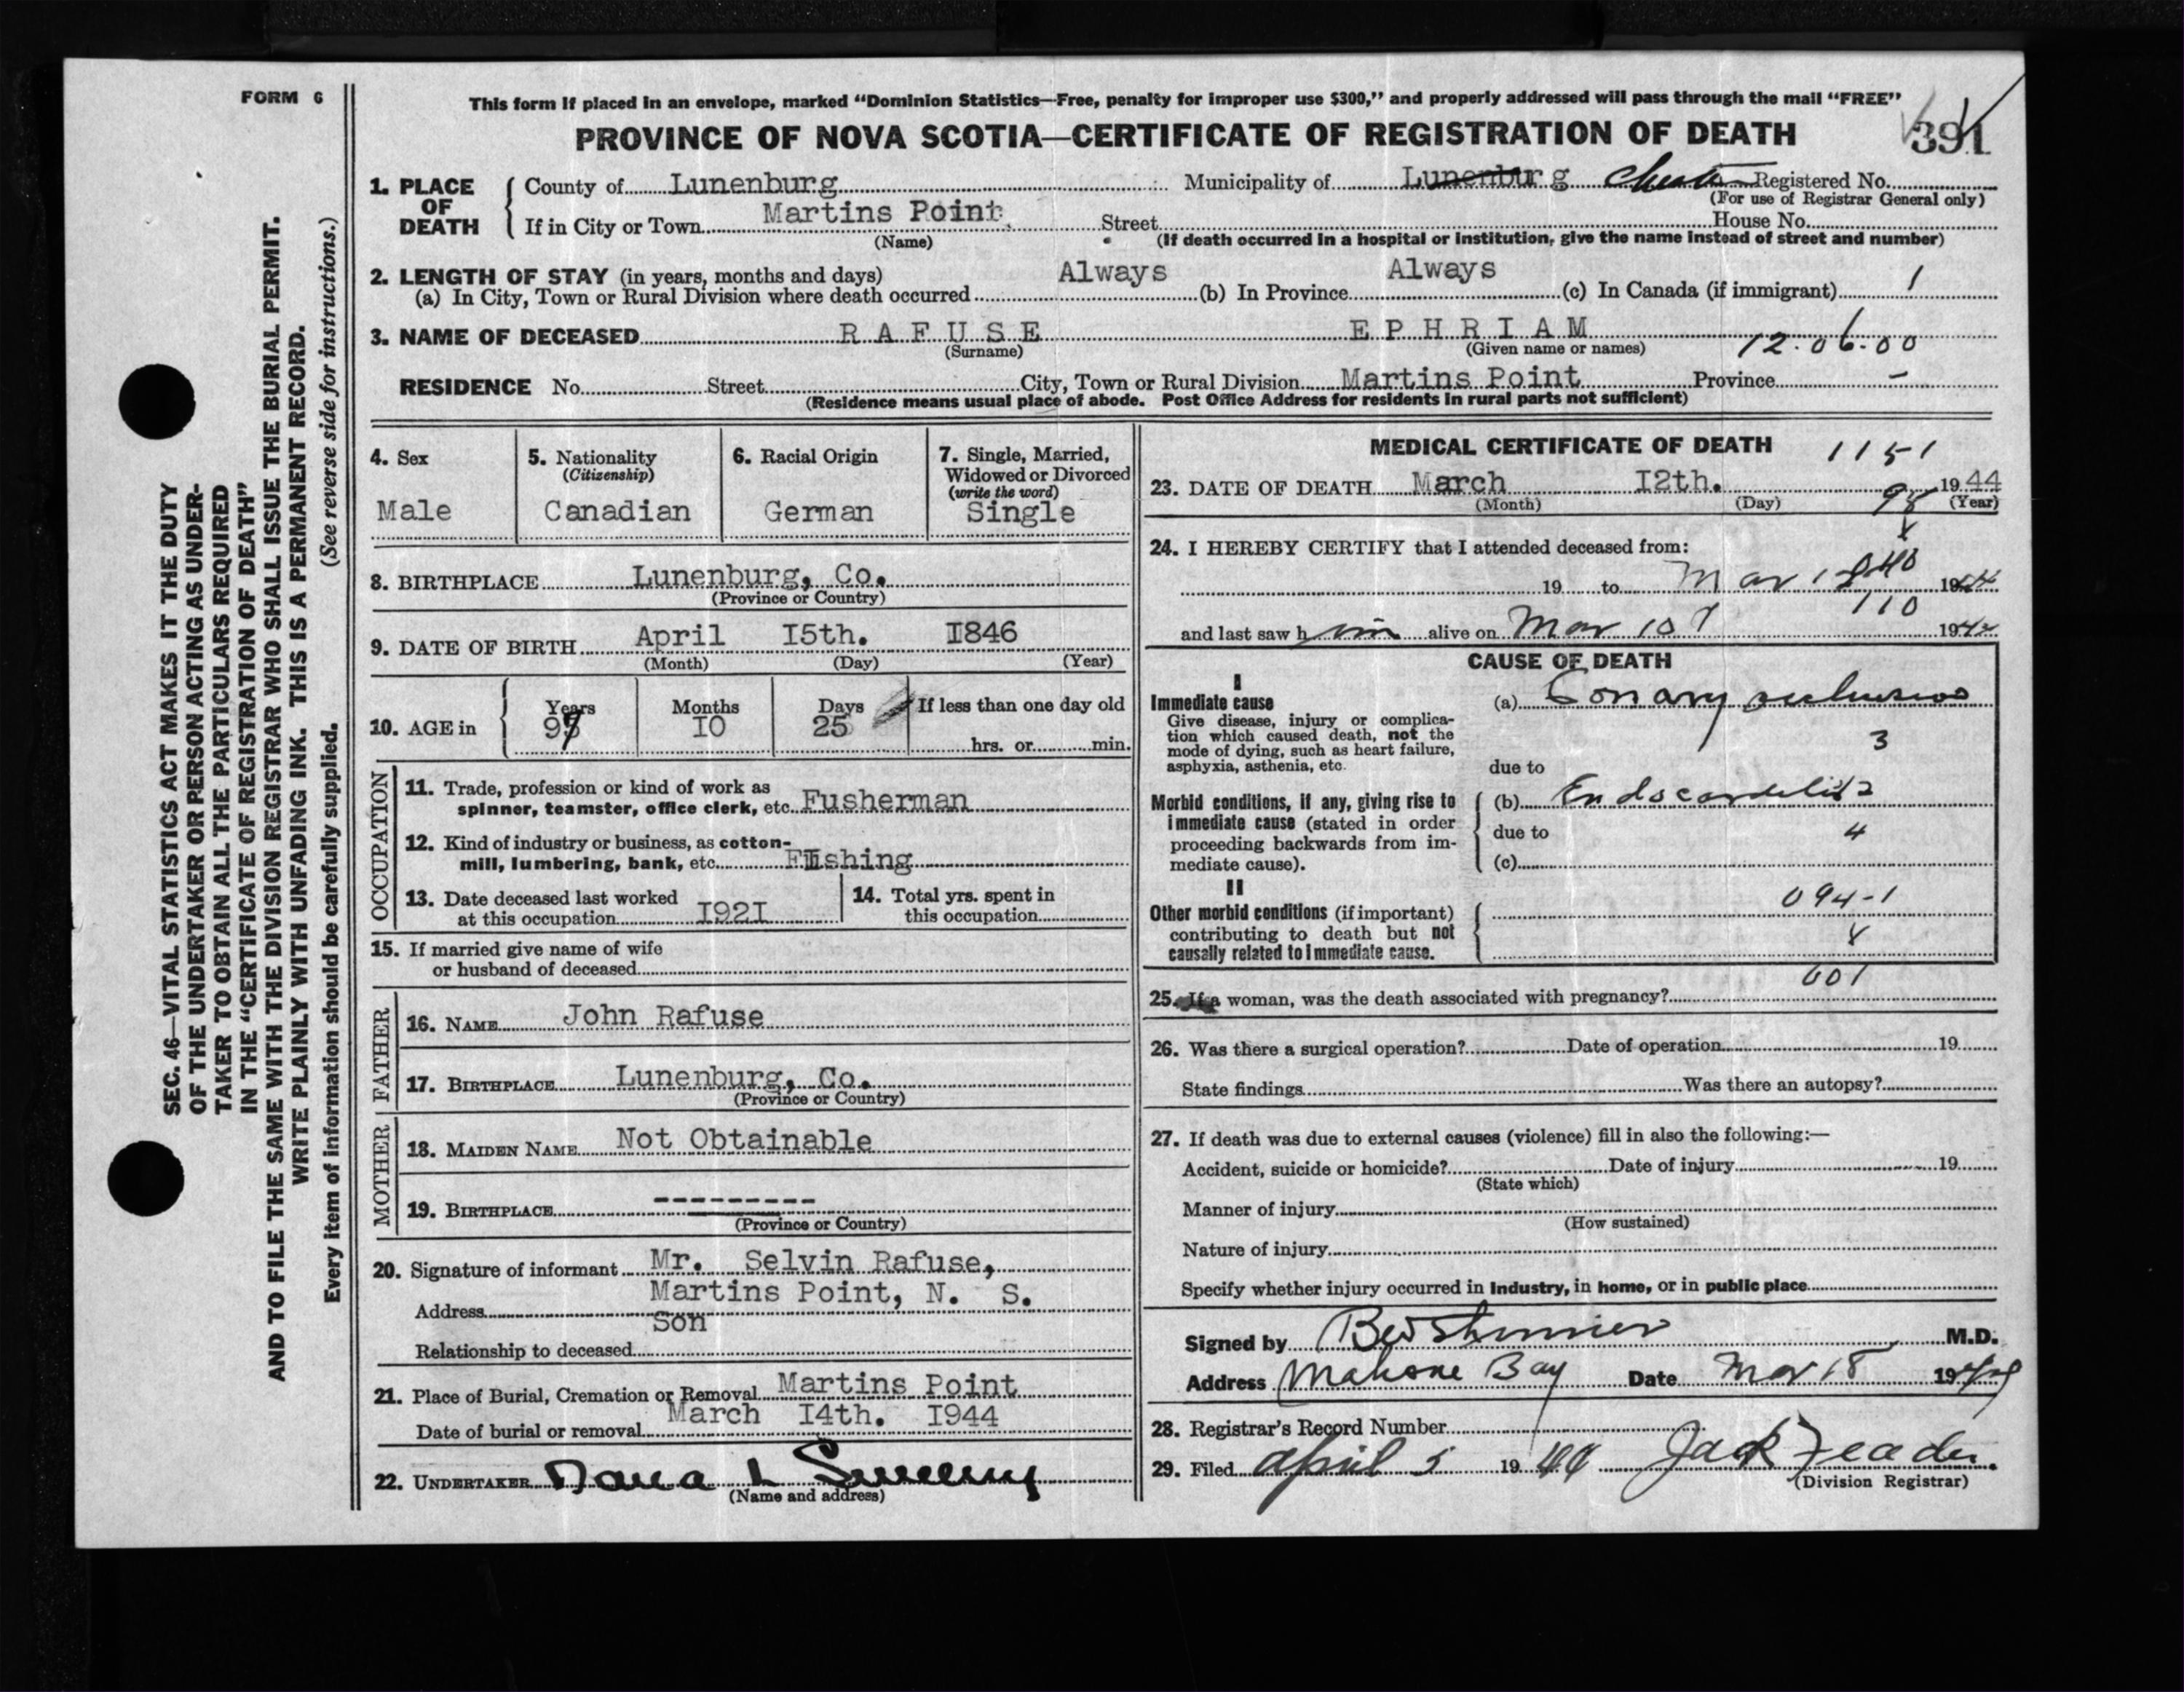 FORM 6
This form if placed in an envelope, marked “Dominion Statistics—Free, penalty for improper use $300,” and properly addressed will pass through the mail “FREE”
PROVINCE OF NOVA SCOTIA—CERTIFICATE OF REGISTRATION OF DEATH
391
SEC. 46—VITAL STATISTICS ACT MAKES IT THE DUTY
OF THE UNDERTAKER OR PERSON ACTING AS UNDER-
TAKER TO OBTAIN ALL THE PARTICULARS REQUIRED
IN THE “CERTIFICATE OF REGISTRATION OF DEATH”
AND TO FILE THE SAME WITH THE DIVISION REGISTRAR WHO SHALL ISSUE THE BURIAL PERMIT.
WRITE PLAINLY WITH UNFADING INK. THIS IS A PERMANENT RECORD.
Every item of information should be carefully supplied. (See reverse side for instructions.)
1. PLACE OF DEATH
County of Lunenburg Municipality of Lunenburg Chester Registered No.
(For use of Registrar General only)
If in City or Town Martins Point Street House No.
(Name) (If death occurred in a hospital or institution, give the name instead of street and number)
2. LENGTH OF STAY (in years, months and days)
(a) In City, Town or Rural Division where death occurred Always (b) In Province Always (c) In Canada (if immigrant) 1
3. NAME OF DECEASED RAFUSE EPHRIAM
(Surname) (Given name or names) 12.06.00
RESIDENCE No. Street City, Town or Rural Division Martins Point Province –
(Residence means usual place of abode. Post Office Address for residents in rural parts not sufficient)
4. Sex
Male
5. Nationality
(Citizenship)
Canadian
6. Racial Origin
German
7. Single, Married,
Widowed or Divorced
(write the word)
Single
8. BIRTHPLACE Lunenburg, Co.
(Province or Country)
9. DATE OF BIRTH April I5th. I846
(Month) (Day) (Year)
10. AGE in
Years Months Days If less than one day old
97 IO 25 hrs. or min.
OCCUPATION
11. Trade, profession or kind of work as
spinner, teamster, office clerk, etc. Fusherman
12. Kind of industry or business, as cotton-
mill, lumbering, bank, etc. Fishing
13. Date deceased last worked
at this occupation I92I
14. Total yrs. spent in
this occupation
15. If married give name of wife
or husband of deceased
FATHER
16. NAME John Rafuse
17. BIRTHPLACE Lunenburg, Co.
(Province or Country)
MOTHER
18. MAIDEN NAME Not Obtainable
19. BIRTHPLACE ---------
(Province or Country)
20. Signature of informant Mr. Selvin Rafuse,
Address Martins Point, N. S.
Relationship to deceased Son
21. Place of Burial, Cremation or Removal Martins Point
Date of burial or removal March I4th. I944
22. UNDERTAKER Dana L Sweeny
(Name and address)
MEDICAL CERTIFICATE OF DEATH
1151
23. DATE OF DEATH March I2th. 1944
(Month) (Day) (Year)
98
24. I HEREBY CERTIFY that I attended deceased from:
19 to Mar 1944
110
and last saw him alive on Mar 10 1944
CAUSE OF DEATH
I
Immediate cause
Give disease, injury or complica-
tion which caused death, not the
mode of dying, such as heart failure,
asphyxia, asthenia, etc.
(a)
3
due to
Morbid conditions, if any, giving rise to
immediate cause (stated in order
proceeding backwards from im-
mediate cause).
(b) Endocarditis
due to
4
(c)
II
Other morbid conditions (if important)
contributing to death but not
causally related to immediate cause.
094-1
601
25. If a woman, was the death associated with pregnancy?
26. Was there a surgical operation? Date of operation 19
State findings Was there an autopsy?
27. If death was due to external causes (violence) fill in also the following:—
Accident, suicide or homicide? Date of injury 19
(State which)
Manner of injury
(How sustained)
Nature of injury
Specify whether injury occurred in industry, in home, or in public place
Signed by M.D.
Address Mahone Bay Date Mar 18 1944
28. Registrar’s Record Number
29. Filed April 5 1944 Jack Zeader.
(Division Registrar)